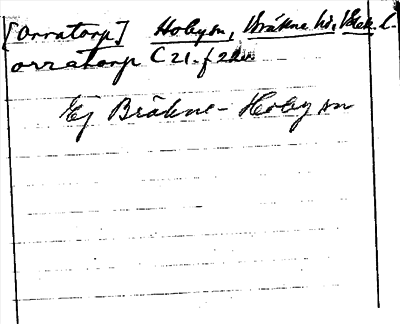 [Orratorp] Hoby sn, Bräkne hd, Blek. l.
orratorp C 21. f 2
Ej Bräkne-Hoby sn